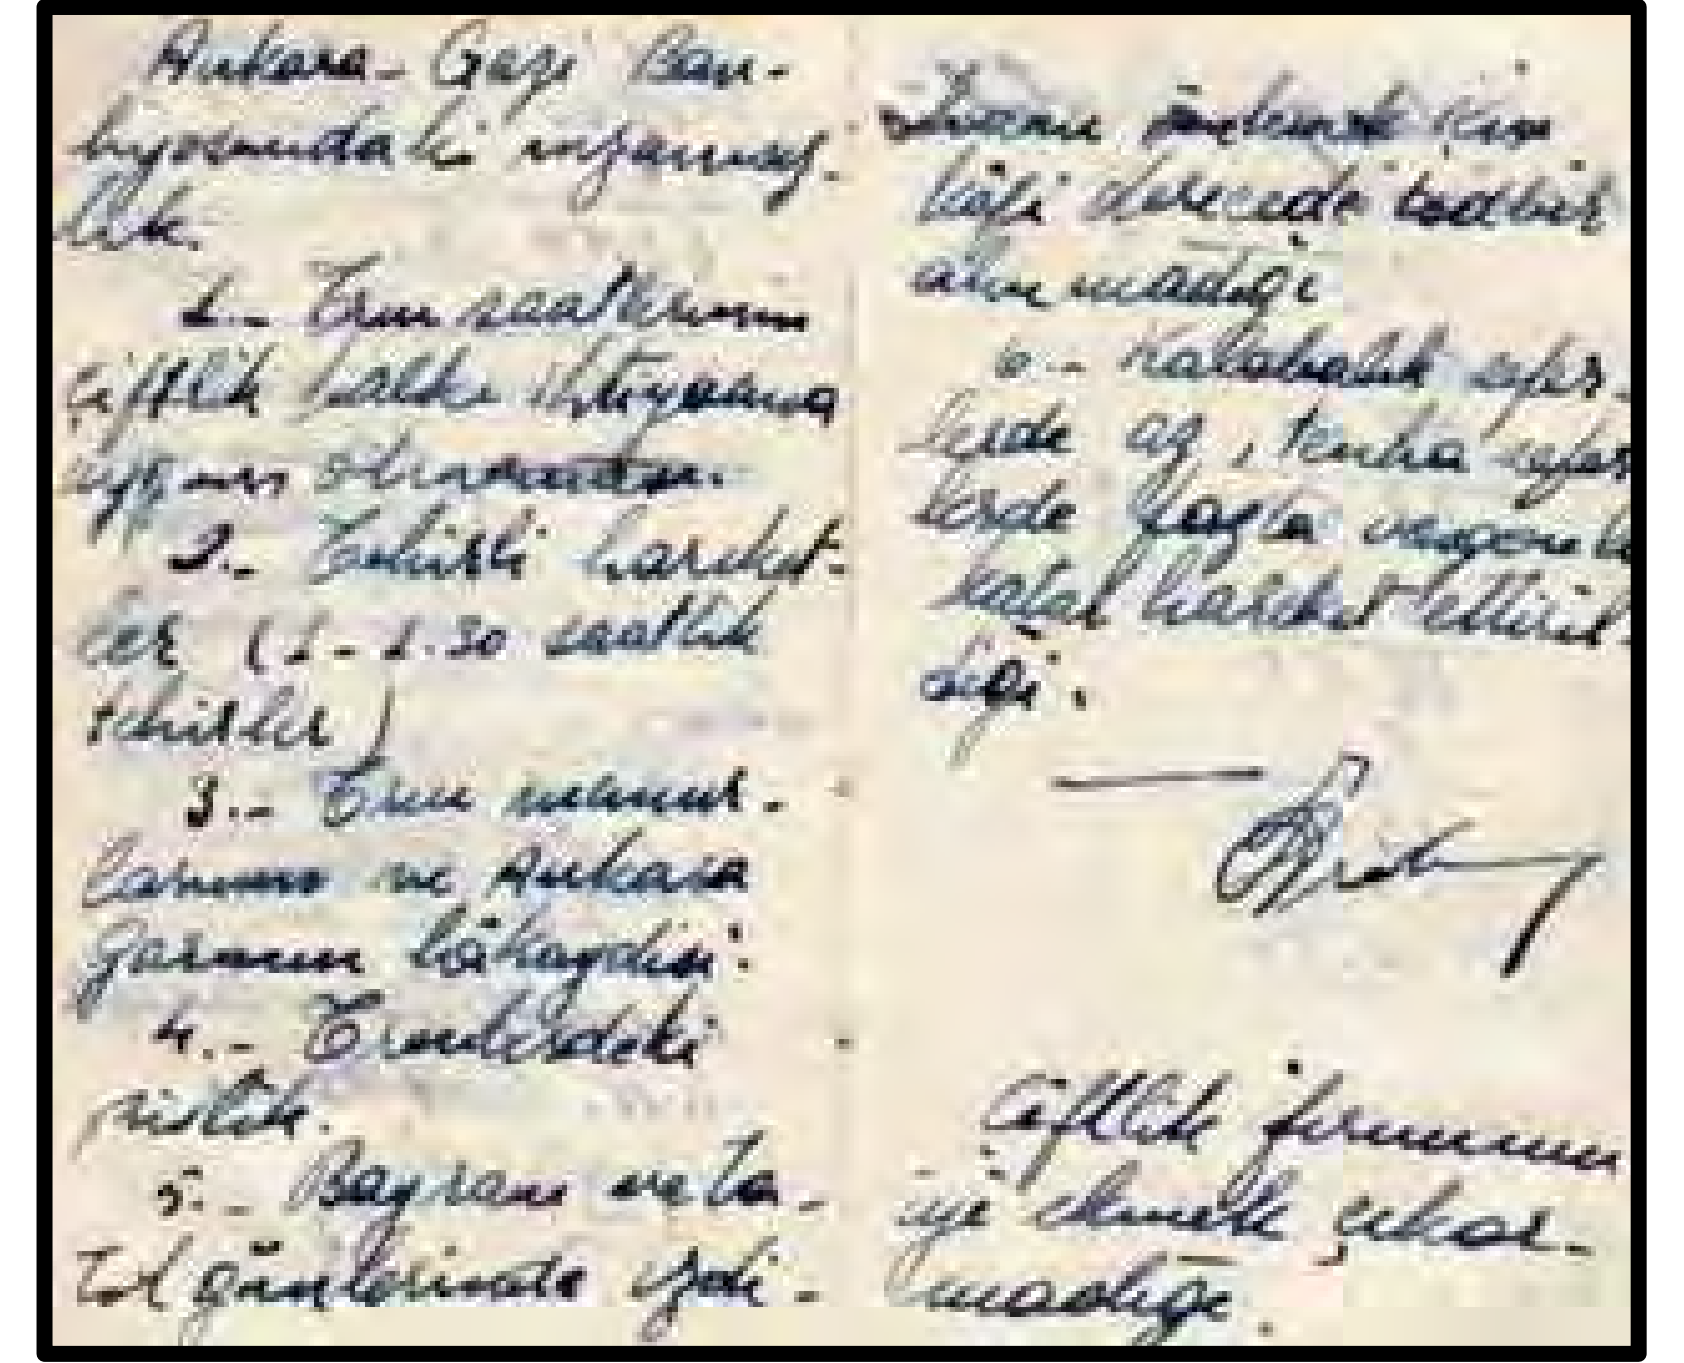 Ankara - Gazi Ban-
liyosundaki intizamsız-
lık.
1.- Tren saatlerinin
çiftlik halkı ihtiyacına
uygun olmaması.
2.- Tehirli hareket-
ler (1 - 1.30 saatlik
tehirler)
3.- Tren memur-
larının ve Ankara
garının lâkaydisi.
4.- Trenlerdeki
pislik.
5.- Bayram ve ta-
til günlerinde izdi-
hamı önlemek için
kâfi derecede tedbir
alınmadığı
6.- Kalabalık sefer-
lerde az, tenha sefer
lerde fazla vagonla
katar hareket ettiril-
diği.
Çiftlik fırınının
iyi ekmek çıkar-
madığı.